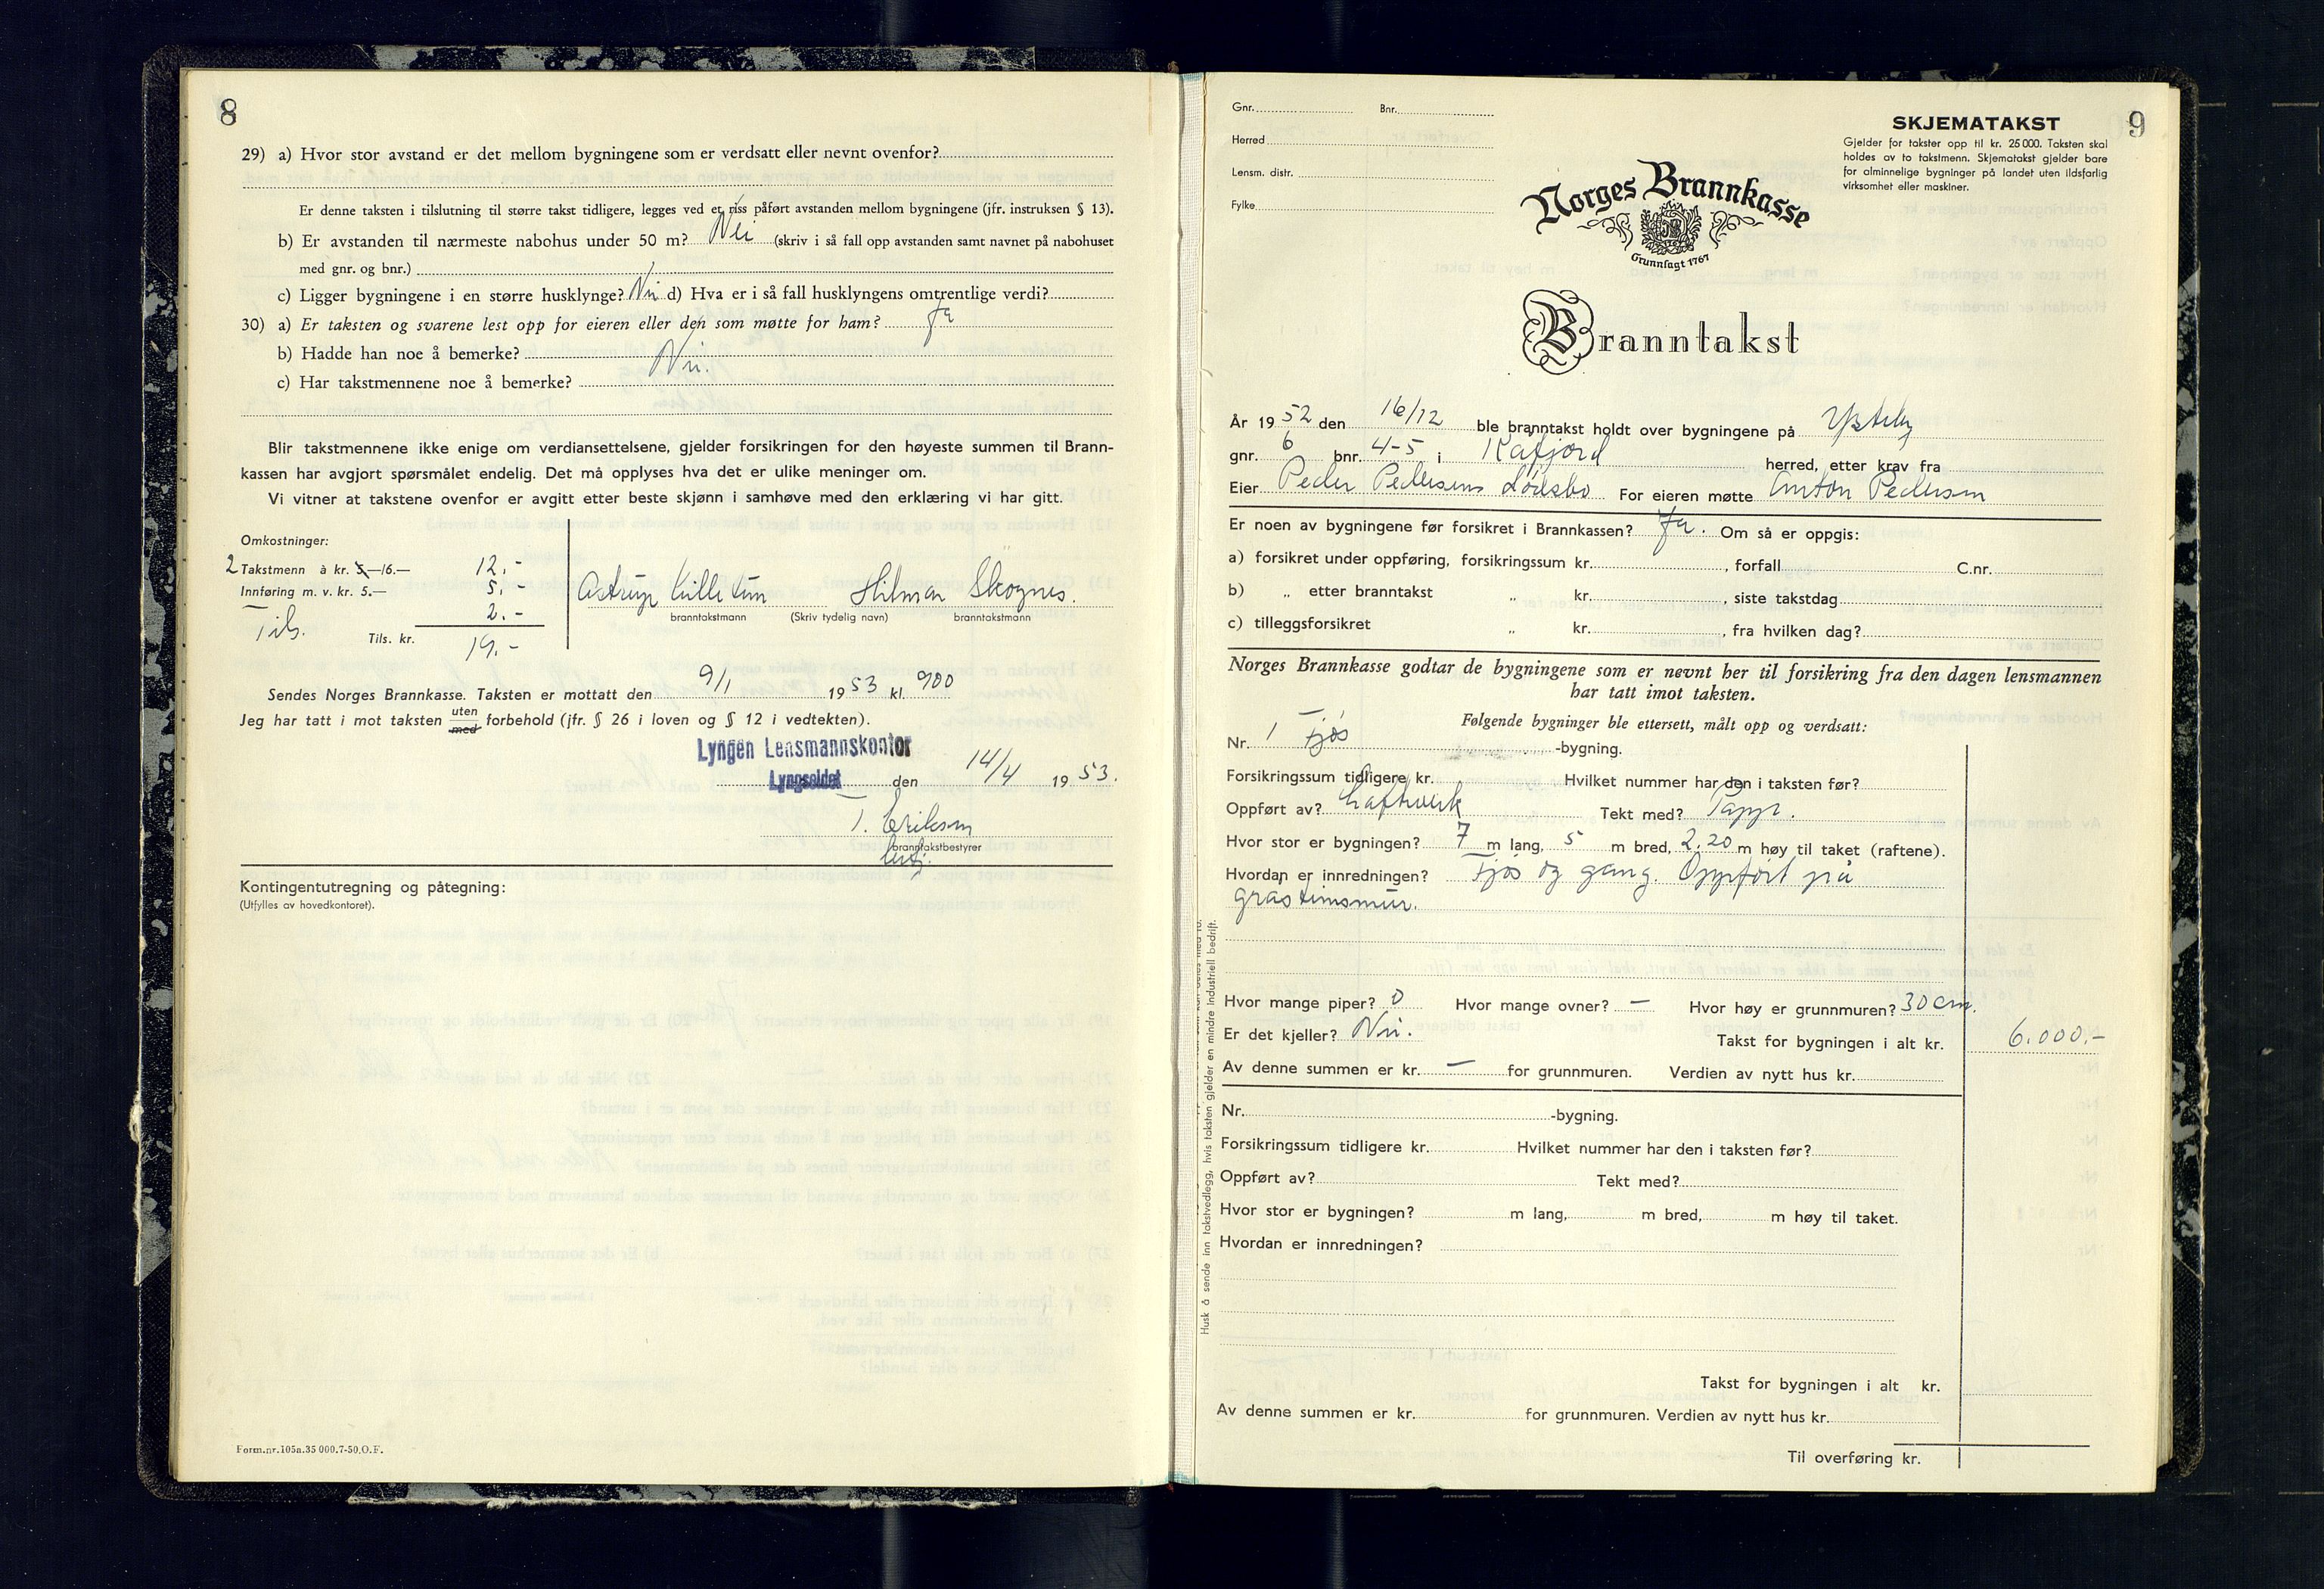 8
29) a) Hvor stor avstand er det mellom bygningene som er verdsatt eller nevnt ovenfor?
Er denne taksten i tilslutning til større takst tidligere, legges ved et riss påført avstanden mellom bygningene (jfr. instruksen § 13).
b) Er avstanden til nærmeste nabohus under 50 m? Nei (skriv i så fall opp avstanden samt navnet på nabohuset
med gnr. og bnr.)
c) Ligger bygningene i en større husklynge? Nei d) Hva er i så fall husklyngens omtrentlige verdi?
30) a) Er taksten og svarene lest opp for eieren eller den som møtte for ham? Ja
b) Hadde han noe å bemerke? Nei.
c) Har takstmennene noe å bemerke?
Blir takstmennene ikke enige om verdiansettelsene, gjelder forsikringen for den høyeste summen til Brann-
kassen har avgjort spørsmålet endelig. Det må opplyses hva det er ulike meninger om.
Vi vitner at takstene ovenfor er avgitt etter beste skjønn i samhøve med den erklæring vi har gitt.
Omkostninger:
2 Takstmenn à kr. 5.—/6.— 12.-
Innføring m. v. kr. 5.— 5.-
2.-
Tils. kr. 19.-
Astrup Hilmar Skognes.
branntakstmann (Skriv tydelig navn) branntakstmann
Sendes Norges Brannkasse. Taksten er mottatt den 9/1 1953 kl. 900
Jeg har tatt i mot taksten uten med forbehold (jfr. § 26 i loven og § 12 i vedtekten).
Lyngen Lensmannskontor
Lyngseidet den 14/4 1953.
T. Eriksen
branntakstbestyrer
Kontingentutregning og påtegning:
(Utfylles av hovedkontoret).
Form.nr.105a.35 000.7-50.O.F.
9
Gnr. Bnr.
Herred
Lensm. distr.
Fylke
SKJEMATAKST
Gjelder for takster opp til kr. 25 000. Taksten skal
holdes av to takstmenn. Skjematakst gjelder bare
for alminnelige bygninger på landet uten ildsfarlig
virksomhet eller maskiner.
Norges Brannkasse
Grunnlagt 1767
Branntakst
År 1952 den 16/12 ble branntakst holdt over bygningene på Ysteby
gnr. 6 bnr. 4-5 i Kåfjord herred, etter krav fra
Eier Peder Pedersens dødsbo For eieren møtte Anton Pedersen
Er noen av bygningene før forsikret i Brannkassen? Ja. Om så er oppgis:
a) forsikret under oppføring, forsikringssum kr. , forfall C.nr.
b) „ etter branntakst „ kr. , siste takstdag
c) tilleggsforsikret „ kr. , fra hvilken dag?
Norges Brannkasse godtar de bygningene som er nevnt her til forsikring fra den dagen lensmannen
har tatt imot taksten.
Følgende bygninger ble ettersett, målt opp og verdsatt:
Nr. 1 Fjøs -bygning.
Forsikringssum tidligere kr. Hvilket nummer har den i taksten før?
Oppført av? Laftverk Tekt med? Papp.
Hvor stor er bygningen? 7 m lang, 5 m bred, 2,20 m høy til taket (raftene).
Hvordan er innredningen? Fjøs og gang. Oppført på
gråsteinsmur.
Hvor mange piper? 0 Hvor mange ovner? — Hvor høy er grunnmuren? 30 cm.
Er det kjeller? Nei. Takst for bygningen i alt kr. 6.000.-
Av denne summen er kr. — for grunnmuren. Verdien av nytt hus kr.
Nr. -bygning.
Forsikringssum tidligere kr. Hvilket nummer har den i taksten før?
Oppført av? Tekt med?
Hvor stor er bygningen? m lang, m bred, m høy til taket.
Hvordan er innredningen?
Takst for bygningen i alt kr.
Av denne summen er kr. for grunnmuren. Verdien av nytt hus kr.
Til overføring kr.
Husk å sende inn takstvedlegg, hvis taksten gjelder en mindre industriell bedrift.